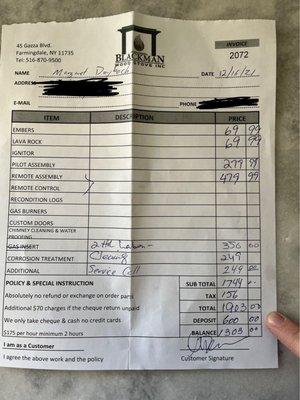 45 Gazza Blvd.
Farmingdale, NY 11735
Tel: 516-870-9500
BLACKMAN
WOOD STOVE INC
INVOICE
2072
NAME Margaret
DATE 12/15/21
ADDRESS
E-MAIL
PHONE
ITEM DESCRIPTION PRICE
EMBERS 69 99
LAVA ROCK 69 99
IGNITOR
PILOT ASSEMBLY 279 99
REMOTE ASSEMBLY 479 99
REMOTE CONTROL
RECONDITION LOGS
GAS BURNERS
CUSTOM DOORS
CHIMNEY CLEANING & WATER
PROOFING
GAS INSERT 2 Hd Labor - 350 00
CORROSION TREATMENT Cleaning 249
ADDITIONAL Service Call 249 00
POLICY & SPECIAL INSTRUCTION
SUB TOTAL 1744
Absolutely no refund or exchange on order parts
TAX 156
Additional $70 charges if the cheque return unpaid
TOTAL 1903 00
We only take cheque & cash no credit cards
DEPOSIT 600 00
$175 per hour minimum 2 hours
BALANCE 1303 00
I am as a Customer
I agree the above work and the policy
Customer Signature